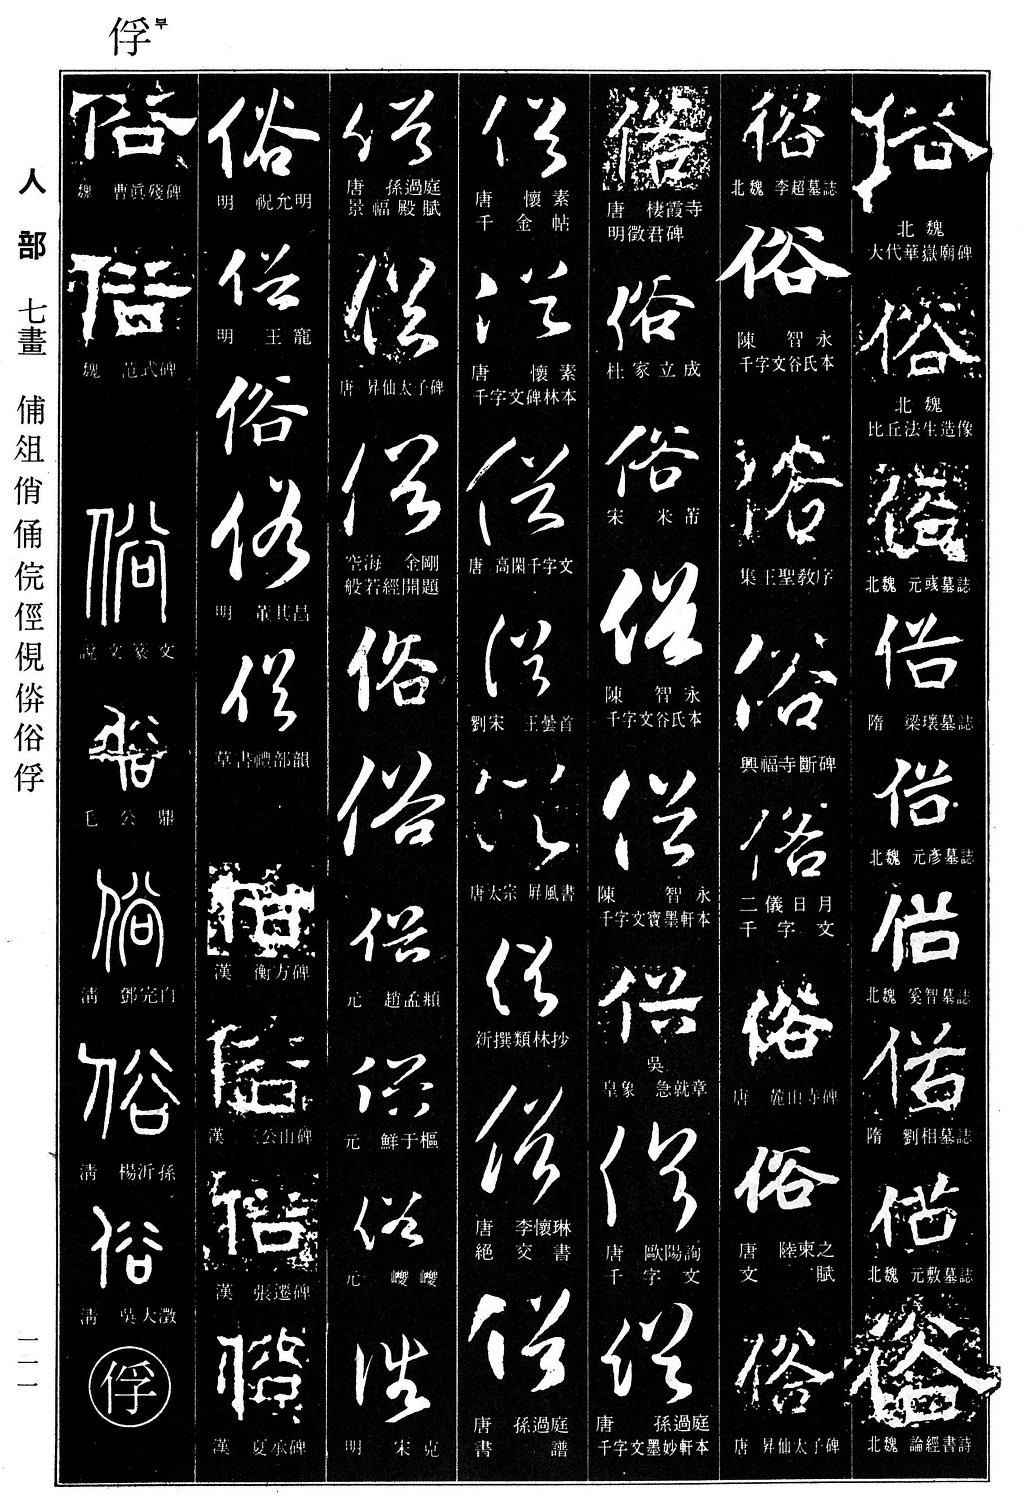 俘 부
人部 七畫 俌俎俏俑俒俓俔俗俗俘
一一一
俗
北魏
大代華嶽廟碑
俗
北魏
比丘法生造像
俗
北魏 元彧墓誌
俗
隋 梁瓌墓誌
俗
北魏 元彥墓誌
俗
北魏 奚智墓誌
俗
隋 劉相墓誌
俗
北魏 元敷墓誌
俗
北魏 論經書詩
俗
北魏 李超墓誌
俗
陳 智永
千字文谷氏本
俗
集王聖敎序
俗
興福寺斷碑
俗
二儀日月
千字文
俗
唐 麓山寺碑
俗
唐 陸柬之
文賦
俗
唐 昇仙太子碑
俗
唐 棲霞寺
明徵君碑
俗
杜家立成
俗
宋 米芾
俗
陳 智永
千字文谷氏本
俗
陳 智永
千字文寶墨軒本
俗
吳
皇象 急就章
俗
唐 歐陽詢
千字文
俗
唐 孫過庭
千字文墨妙軒本
俗
唐 懷素
千金帖
俗
唐 懷素
千字文碑林本
俗
唐 高閑千字文
俗
劉宋 王曇首
俗
唐太宗 屛風書
俗
新撰類林抄
俗
唐 李懷琳
絕交書
俗
唐 孫過庭
書譜
俗
唐 孫過庭
景福殿賦
俗
唐 昇仙太子碑
俗
空海 金剛
般若經開題
俗
俗
俗
元 趙孟頫
俗
元 鮮于樞
俗
元 巙巙
俗
明 宋克
俗
明 祝允明
俗
明 王寵
俗
俗
明 董其昌
俗
草書禮部韻
俗
漢 衡方碑
俗
漢 三公山碑
俗
漢 張遷碑
俗
漢 夏承碑
俗
魏 曹眞殘碑
俗
魏 范式碑
俗
說文篆文
俗
毛公鼎
俗
淸 鄧完白
俗
淸 楊沂孫
俗
淸 吳大澂
俘